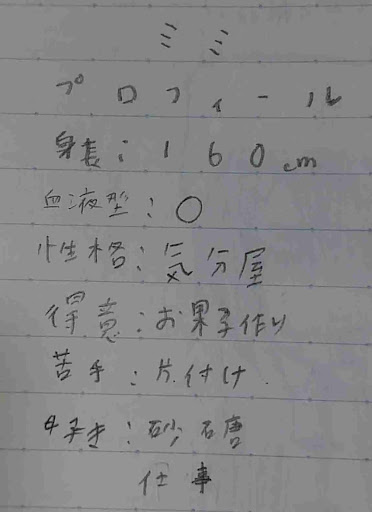 ミミ
プロフィール
身長：160cm
血液型：O
性格：気分屋
得意：お菓子作り
苦手：片付け
好き：砂糖
仕事